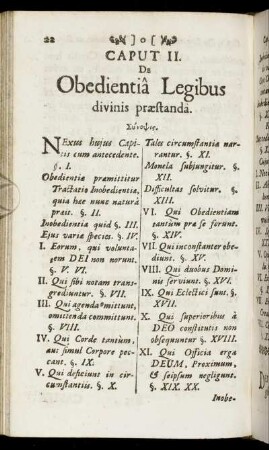 22 ❧ ] o [ ❧
CAPUT II.
De
Obedientiâ Legibus
divinis præstanda.
Σύνοψις.
NExus hujus Capi-
tis cum antecedente.
§. I.
Obedientia præmittitur
Tractatio Inobedientia,
quia hæc nunc naturâ
præit. §. II.
Inobedientia quid §. III.
Ejus variæ species. §. IV.
I. Eorum, qui volunta-
tem DEI non norunt.
§. V. VI.
II. Qui sibi notam trans-
grediuntur. §. VII.
III. Qui agenda omittunt,
omittenda committunt.
§. VIII.
IV. Qui Corde tantùm,
aut simul Corpore pec-
cant. §. IX.
V. Qui deficiunt in cir-
cumstantiis. §. X.
Tales circumstantiæ nar-
rantur. §. XI.
Monela subjungitur. §.
XII.
Difficultas solvitur. §.
XIII.
VI. Qui Obedientiam
tantùm præ se ferunt.
§. XIV.
VII. Qui inconstanter obe-
diunt. §. XV.
VIII. Qui duobus Domi-
nis serviunt. §. XVI.
IX. Qui Eclectici sunt. §.
XVII.
X. Qui superioribus à
DEO constitutis non
obsequuntur §. XVIII.
XI. Qui Officia erga
DEUM, Proximum,
& seipsum negligunt.
§. XIX. XX.
Inobe-